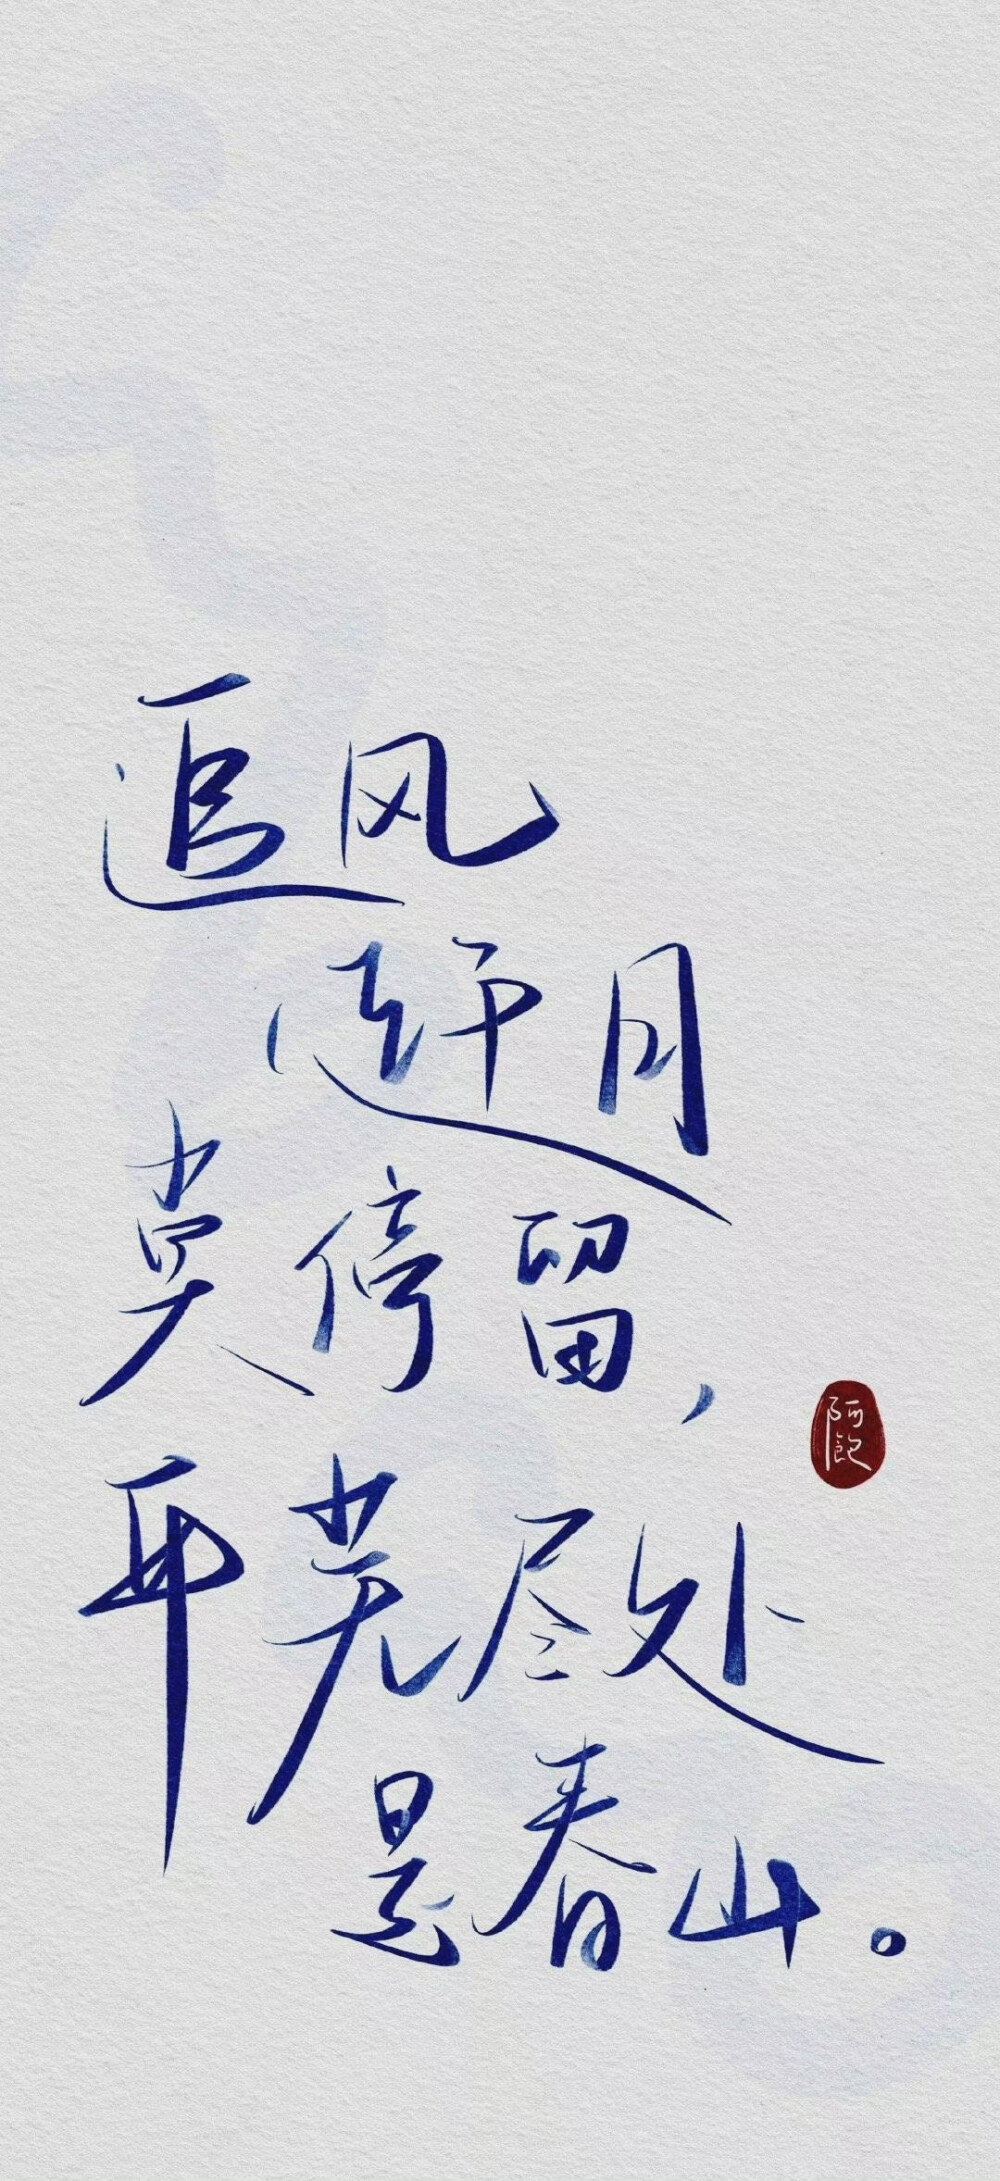 追风
赶月
莫停留，
平芜尽处
是春山。
阿飽